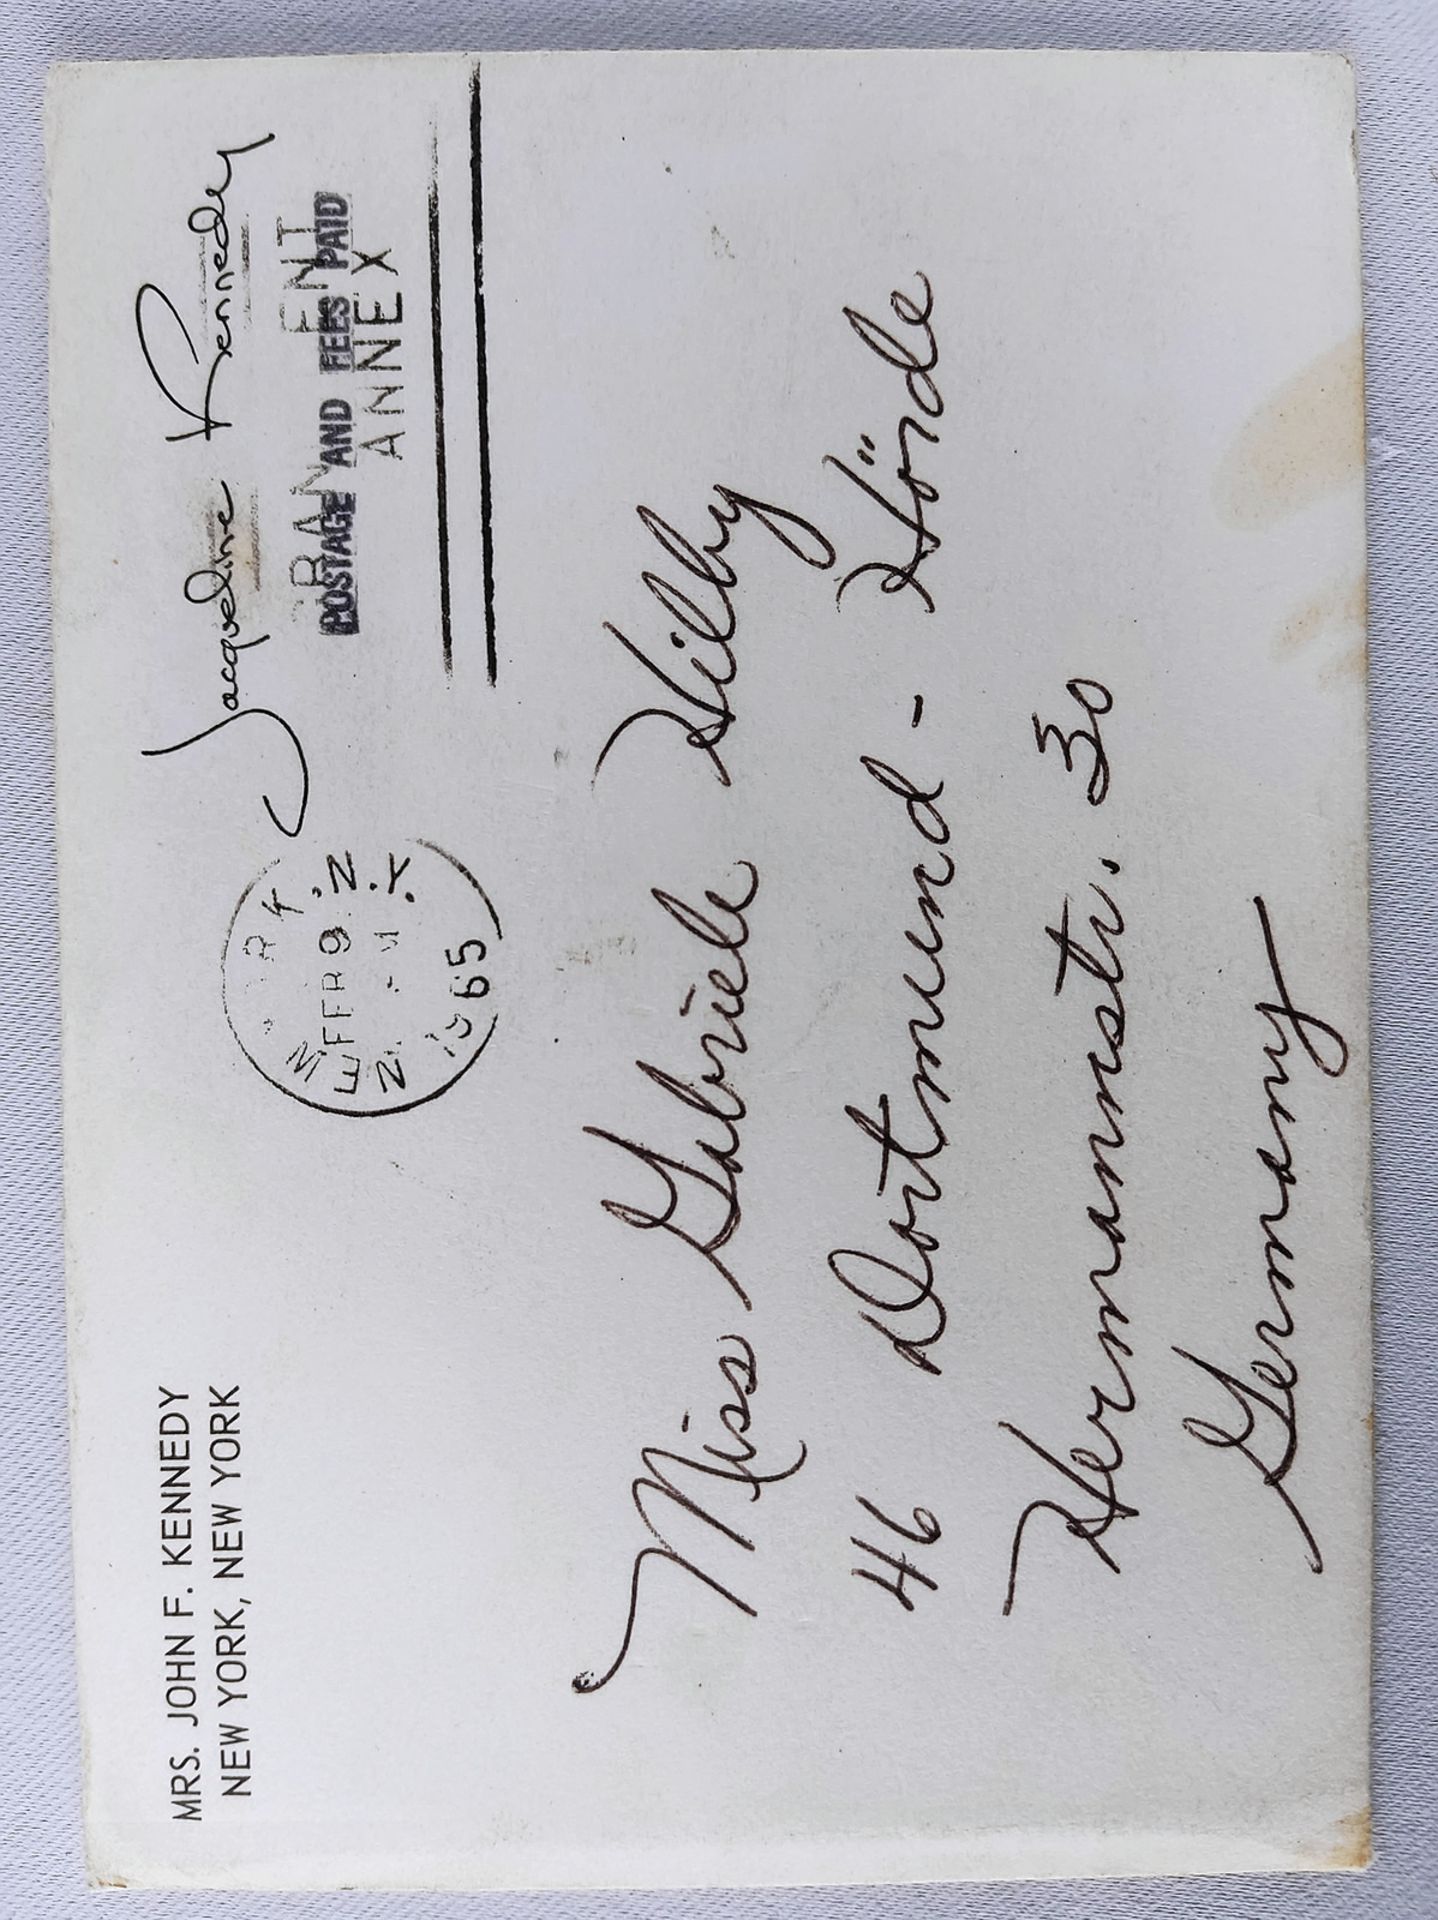 MRS. JOHN F. KENNEDY
NEW YORK, NEW YORK
Jacqueline Kennedy
POSTAGE AND FEES PAID
ANNEX
FEB 9
N.Y.
1965
Miss Gabriele Hilby
46 Dortmund - Hörde
Hermannstr. 30
Germany